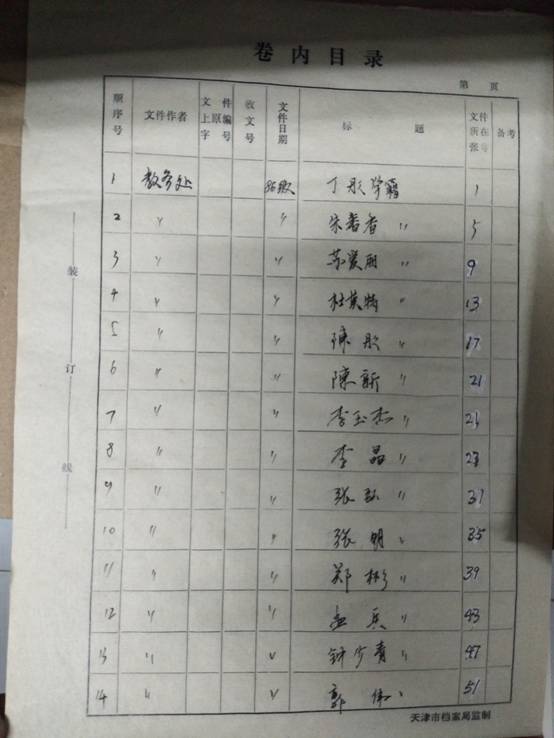 卷内目录
第 页
顺序号 文件作者 文件上原编字号 收文号 文件日期 标题 文件所在张号 备考
1 教务处 86级 丁彤学籍 1
2 〃 〃 朱香 〃 5
3 〃 〃 苏爱丽 〃 9
4 〃 〃 杜英梅 〃 13
5 〃 〃 陈彤 〃 17
6 〃 〃 陈新 〃 21
7 〃 〃 李玉杰 〃 25
8 〃 〃 李晶 〃
9 〃 〃 张 〃 31
10 〃 〃 张明 〃 35
11 〃 〃 郑彬 〃 39
12 〃 〃 孟兵 〃 43
13 〃 〃 钟步青 〃 47
14 〃 〃 郭伟 〃 51
装订线
天津市档案局监制